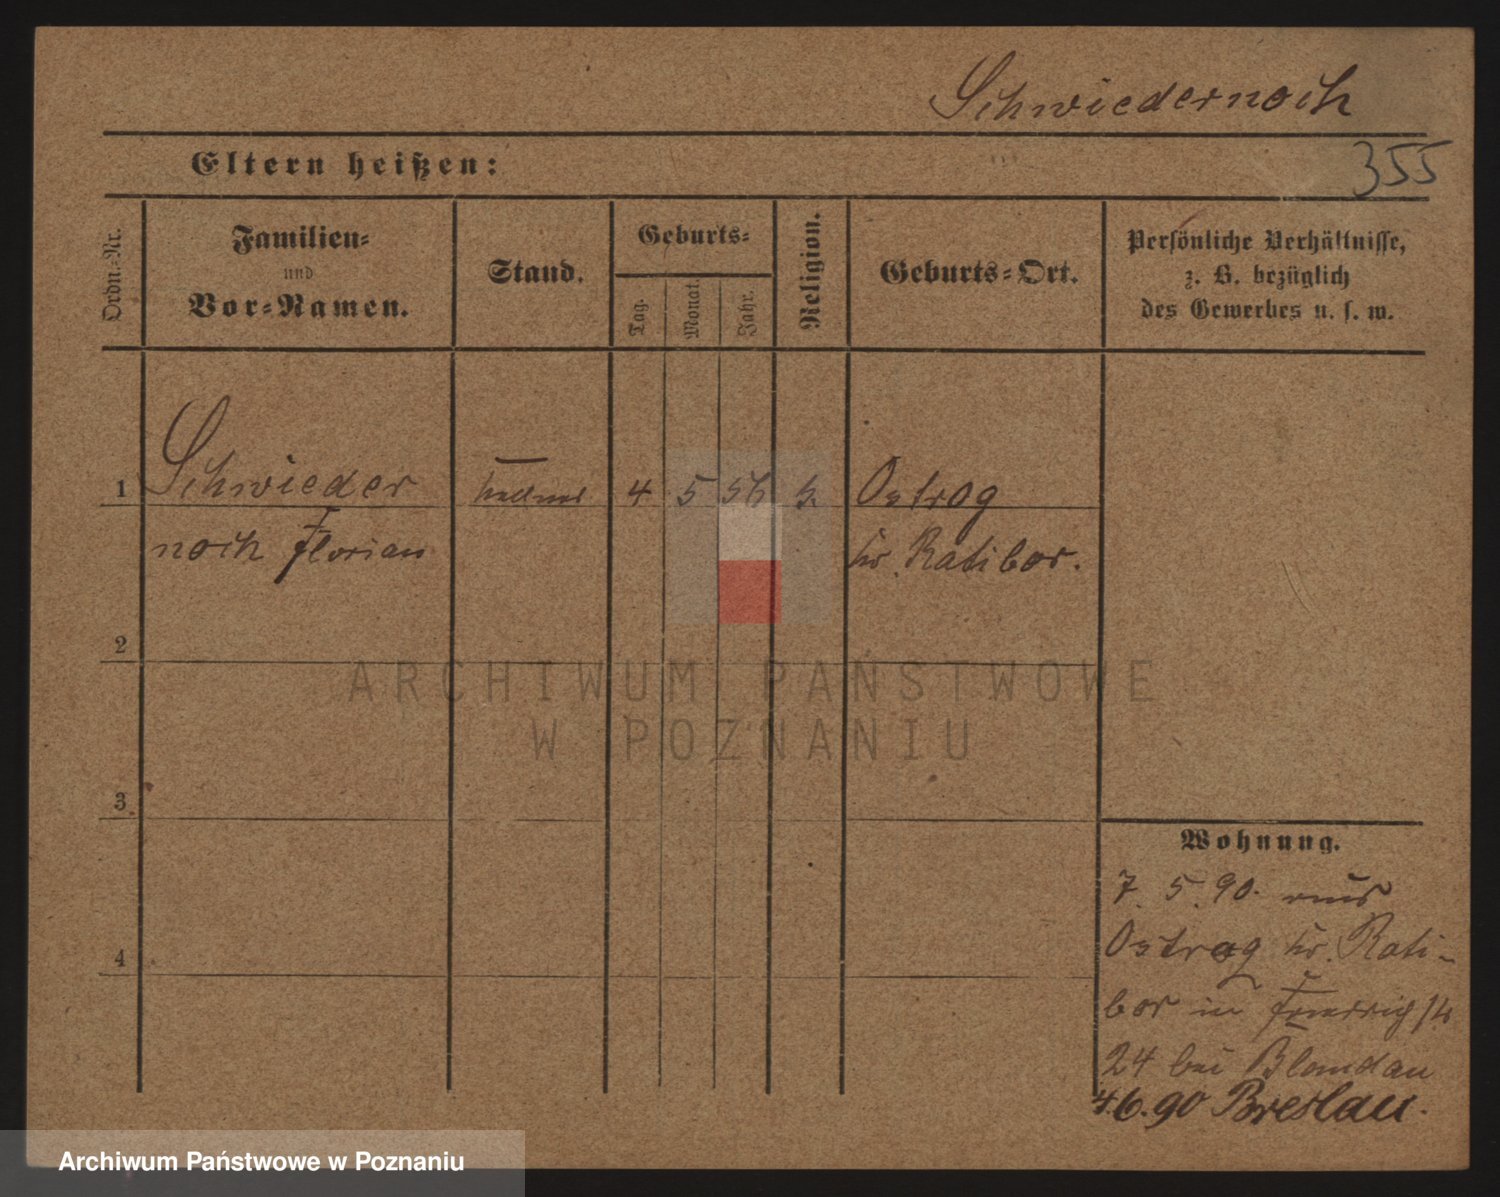 Schwiedernoch
355
Eltern heißen:
Ordn.-Nr.
Familien-
und
Vor-Namen.
Stand.
Geburts-
Tag.
Monat.
Jahr.
Religion.
Geburts-Ort.
Persönliche Verhältnisse,
z. B. bezüglich
des Gewerbes u. s. w.
1
Schwieder
4
5
56
k.
Ostrog
noch Florian
Kr. Ratibor.
2
3
4
Wohnung.
7. 5. 90. aus
Ostrog Kr. Rati-
bor in
24 bei Blandau
4.6.90 Breslau.
ARCHIWUM PAŃSTWOWE
W POZNANIU
Archiwum Państwowe w Poznaniu